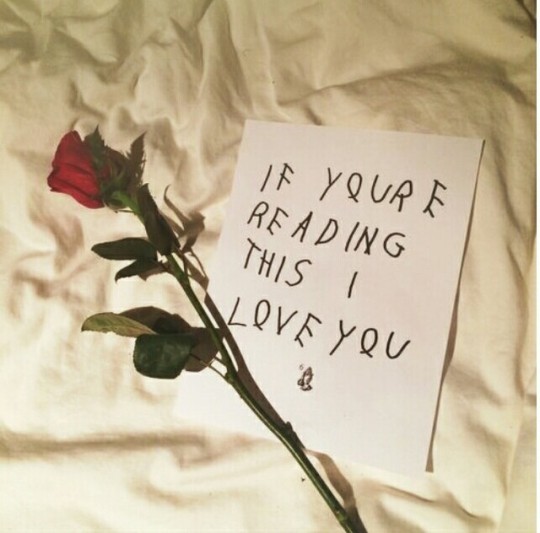 IF YOURE
READING
THIS I
LOVE YOU